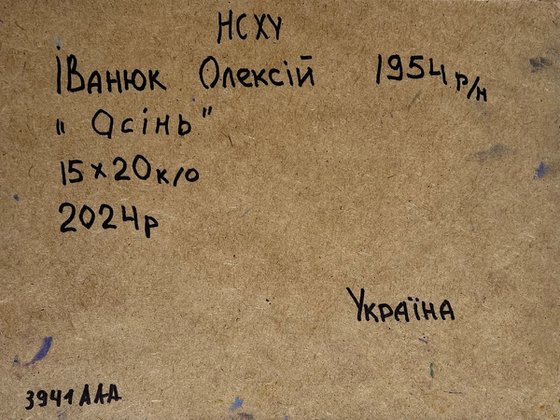 НСХУ
Іванюк Олексій 1954 р/н
"Осінь"
15х20 к/о
2024р
Україна
3941 ААА